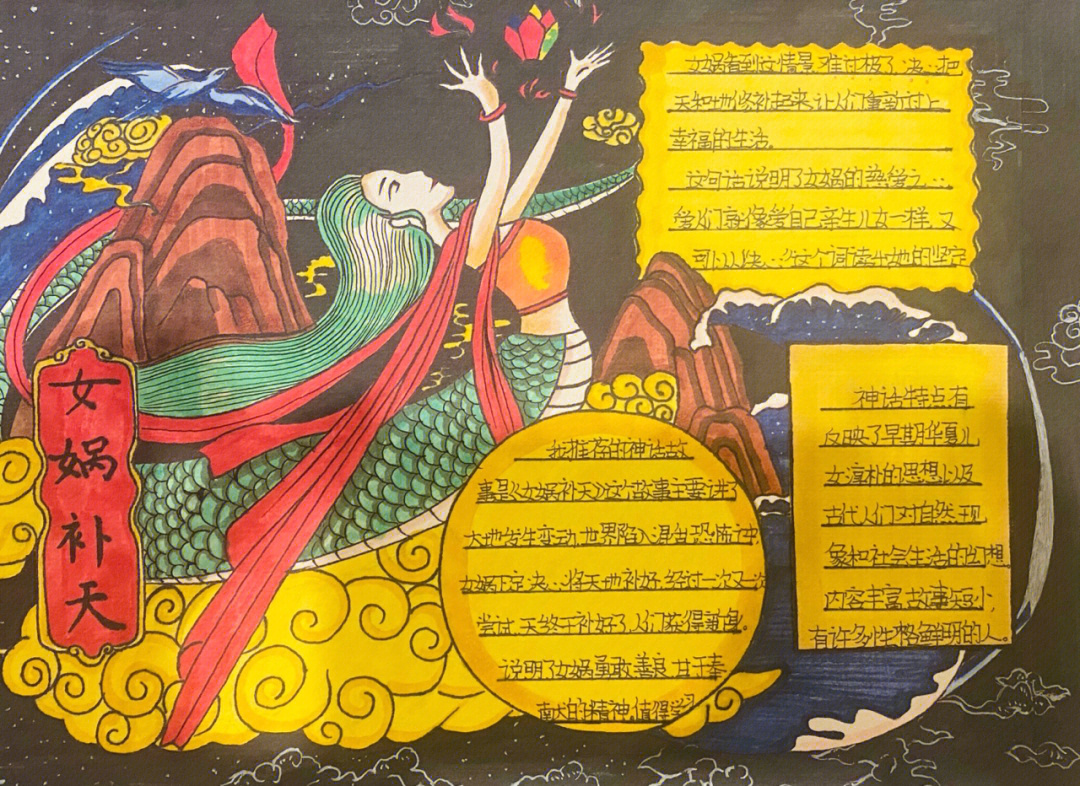 女娲补天
女娲看到这情景,难过极了,决心把
天和地修补起来,让人们重新过上
幸福的生活。
这句话说明了女娲的热爱之心,
爱人们就像爱自己亲生儿女一样,又
可以从"决心"这个词读出她的坚定
我推荐的神话故
事是《女娲补天》这个故事主要讲了
大地发生变动,世界陷入混乱恐怖之中,
女娲下定决心将天地补好,经过一次又一次
尝试,天终于补好了,人们获得新自。
说明了女娲勇敢善良,甘于奉
献的精神,值得学习
神话特点有
反映了早期华夏儿
女淳朴的思想以及
古代人们对自然现
象和社会生活的幻想
内容丰富,故事短小,
有许多性格鲜明的人。